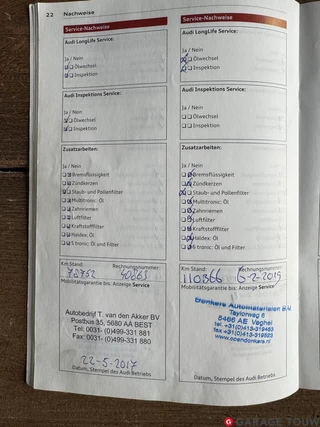 22 Nachweise
Service-Nachweise
Audi LongLife Service:
Ja / Nein
Ölwechsel
Inspektion
Audi Inspektions Service:
Ja / Nein
Ölwechsel
Inspektion
Zusatzarbeiten:
Ja / Nein
Bremsflüssigkeit
Zündkerzen
Staub- und Pollenfilter
Multitronic: Öl
Zahnriemen
Luftfilter
Kraftstofffilter
Haldex: Öl
S tronic: Öl und Filter
Km Stand: Rechnungsnummer:
Mobilitätsgarantie bis: Anzeige Service
Autobedrijf T. van den Akker BV
Postbus 35, 5680 AA BEST
Tel: 0031. (0)499-331 881
Fax: 0031. (0)499-330 880
22-5-2017
Datum, Stempel des Audi Betriebs
Service-Nachweise
Audi LongLife Service:
Ja / Nein
Ölwechsel
Inspektion
Audi Inspektions Service:
Ja / Nein
Ölwechsel
Inspektion
Zusatzarbeiten:
Ja / Nein
Bremsflüssigkeit
Zündkerzen
Staub- und Pollenfilter
Multitronic: Öl
Zahnriemen
Luftfilter
Kraftstofffilter
Haldex: Öl
S tronic: Öl und Filter
Km Stand:
110366 6-2-2019
Mobilitätsgarantie bis: Anzeige Service
Donkers Automaterialen B.V.
Taylorweg 6
5466 AE Veghel
Datum, Stempel des Audi Betriebs
GARAGE TOUW